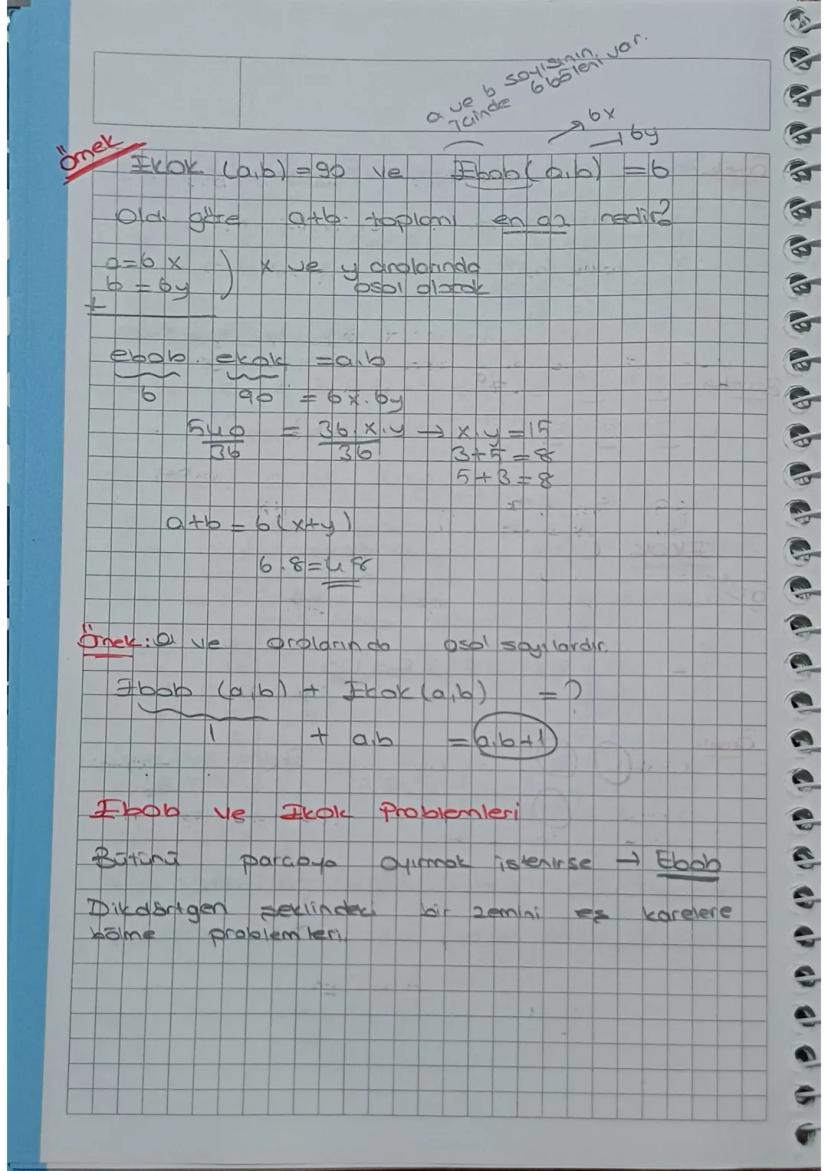 a ve b sayısının
içinde 6 böleni var.
6x
6y
Örnek
İkok (a,b) = 90 ve İbob(a,b) = 6
Old. göre a+b toplamı en az nedir?
a=6x ) x ve y aralarında
b = 6y asal olarak
+
ebob . ekok = a.b
6 90 = 6x.6y
540/36 = 36.x.y/36 → x.y=15
3+5=8
5+3=8
a+b = 6(x+y)
6.8=48
Örnek: a ve aralarında asal sayılardır.
İbob (a,b) + İkok(a,b) = ?
1 + a.b = a.b+1
İbob ve İkok Problemleri
Bütünü parçaya ayırmak istenirse → Ebob
Dikdörtgen şeklindeki bir zemini eş karelere
bölme problemleri